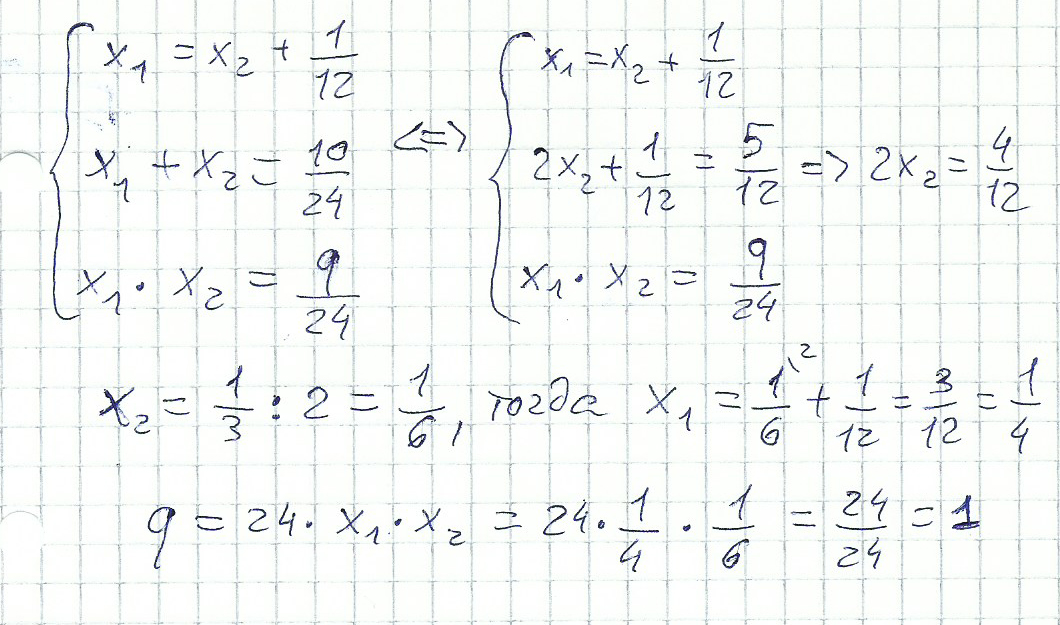 { x₁ = x₂ + 1/12 <=> { x₁ = x₂ + 1/12
x₁ + x₂ = 10/24 2x₂ + 1/12 = 5/12 => 2x₂ = 4/12
x₁ · x₂ = q/24 x₁ · x₂ = q/24
x₂ = 1/3 : 2 = 1/6, тогда x₁ = 1/6 ⁽² + 1/12 = 3/12 = 1/4
q = 24 · x₁ · x₂ = 24 · 1/4 · 1/6 = 24/24 = 1